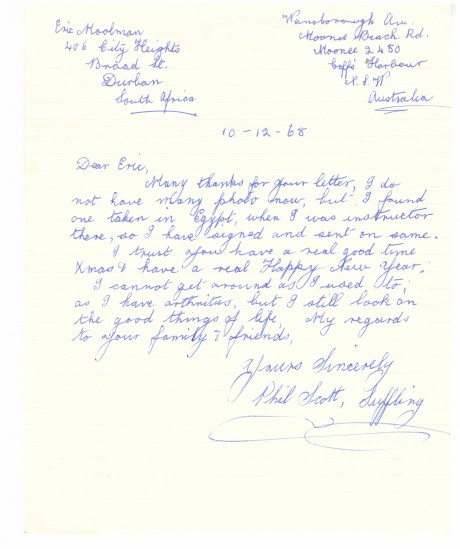 Eric Moolman
406 City Heights
Broad St.
Durban
South Africa
Wansborough Av.
Moonee Beach Rd.
Moonee 2450
Coffs Harbour
N.S.W
Australia
10-12-68
Dear Eric,
Many thanks for your letter, I do
not have many photo now, but I found
one taken in Egypt, when I was instructor
there, so I have signed and sent on same.
I trust you have a real good time
Xmas & have a real Happy New Year,
I cannot get around as I used to,
as I have arthrites, but I still look on
the good things of life. My regards
to your family & friends,
Yours Sincerely
Phil Scott,